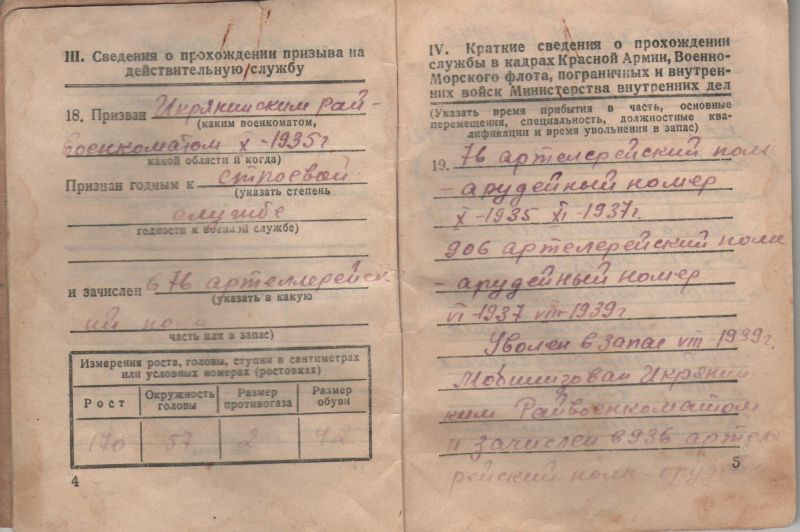 III. Сведения о прохождении призыва на
действительную службу
18. Призван Икрянинским рай-
(каким военкоматом,
военкоматом X-1935г
какой области и когда)
Признан годным к строевой
(указать степень
службе
годности к военной службе)
и зачислен в 76 артеллерейск
(указать в какую
ий полк
часть или в запас)
Измерения роста, головы, ступни в сантиметрах
или условных номерах (ростовках)
Рост Окружность головы Размер противогаза Размер обуви
170 57 2 42
4
IV. Краткие сведения о прохождении
службы в кадрах Красной Армии, Военно-
Морского флота, пограничных и внутрен-
них войск Министерства внутренних дел
(Указать время прибытия в часть, основные
перемещения, специальность, должностные ква-
лификации и время увольнения в запас)
19. 76 артелерейский полк
- арудейный номер
X-1935 XI-1937г.
906 артелерейский полк
- арудейный номер
VI-1937 VIII-1939г
Уволен в запас VIII-1939г.
Мобилизован Икрянин
ким Райвоенкоматом
и зачислен в 936 артеле
рейский полк орудей
5